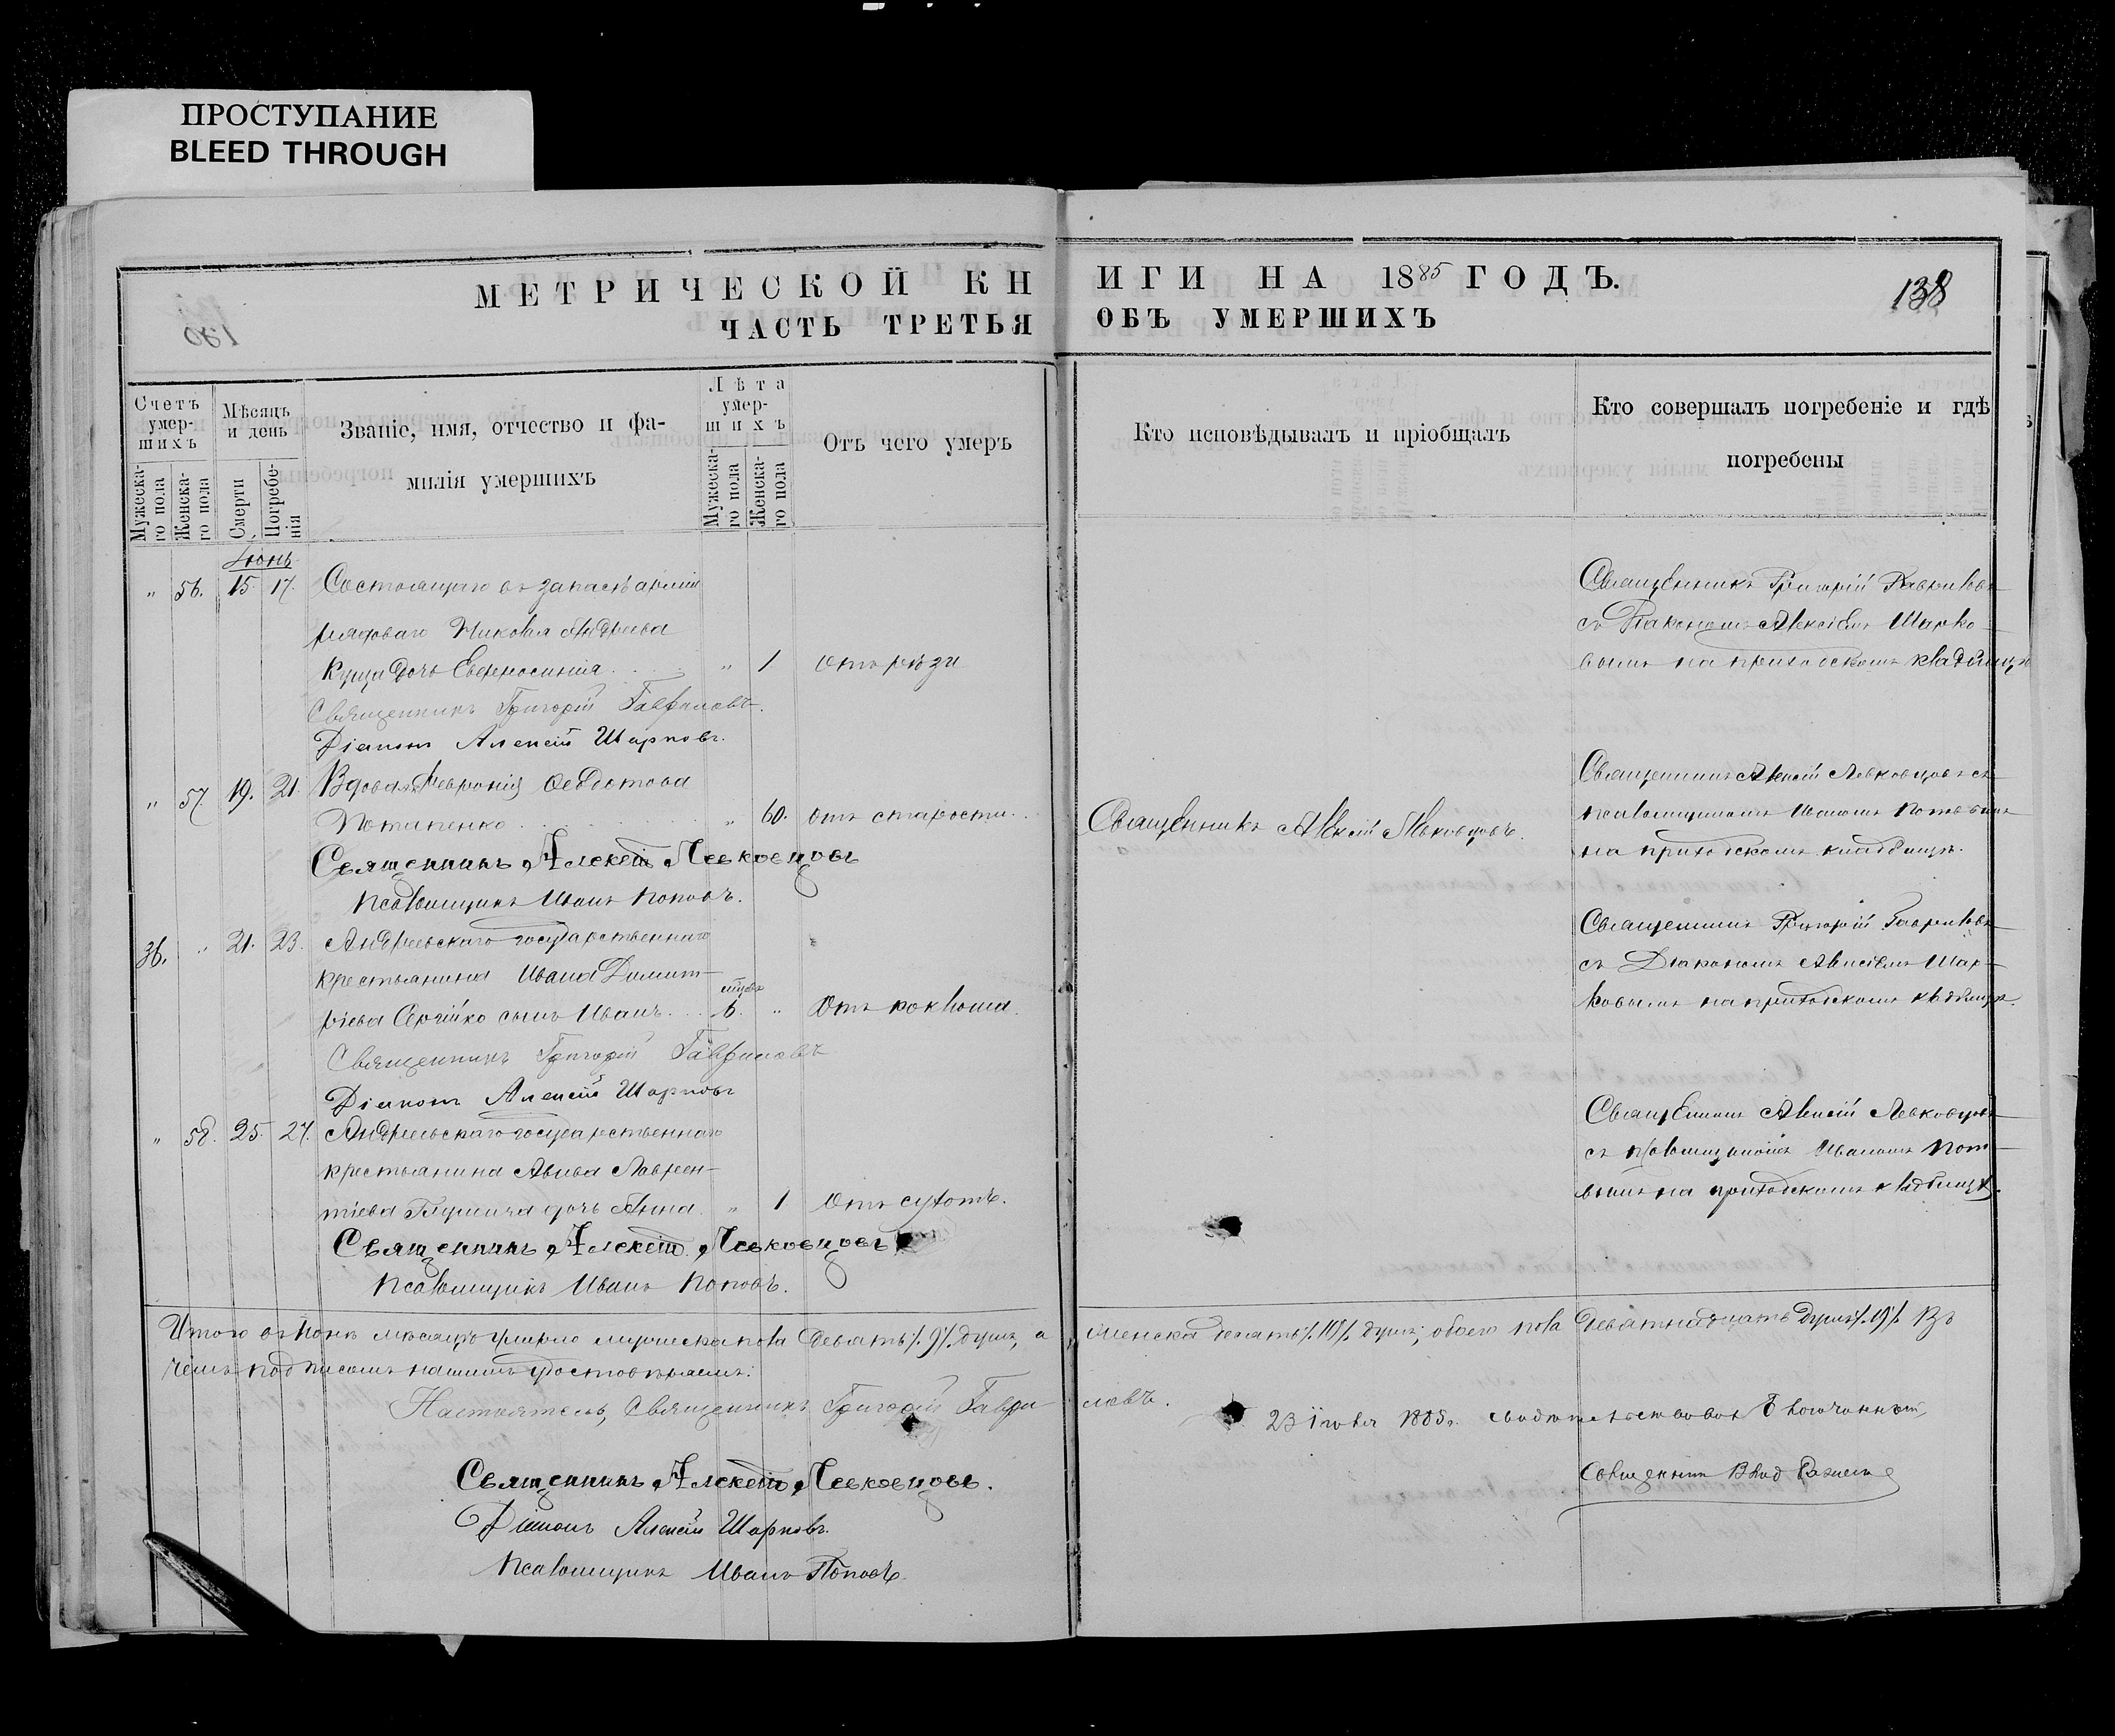 ПРОСТУПАНИЕ
BLEED THROUGH
МЕТРИЧЕСКОЙ КНИГИ НА 1885 ГОДЪ.
138
ЧАСТЬ ТРЕТЬЯ ОБЪ УМЕРШИХЪ
Счетъ умершихъ
Мужескаго пола
Женскаго пола
Мѣсяцъ и день
Смерти
Погребенія
Званіе, имя, отчество и фамилія умершихъ
Лѣта умершихъ
Мужескаго пола
Женскаго пола
Отъ чего умеръ
Кто исповѣдывалъ и пріобщалъ
Кто совершалъ погребеніе и гдѣ погребены
Іюнь
" 56. 15. 17. Состоящаго въ запасѣ арміи
рядоваго Николая Андреева
Куца дочь Евфросинія " 1 Отъ рѣзи
Священникъ Григорій Гавриловъ
съ Діакономъ Алексіемъ Шарко-
вымъ на приходскомъ кладбищѣ
Священникъ Григорій Гавриловъ.
Діаконъ Алексій Шарковъ.
" 57 19. 21. Вдова Февронія Ѳедотова
Потапенко " 60. Отъ старости.
Священникъ Алексій Левковцовъ.
Священникъ Алексій Левковцовъ съ
псаломщикомъ Иваномъ Поповымъ
на приходскомъ кладбищѣ.
Священникъ Алексій Левковцовъ
Псаломщикъ Иванъ Поповъ.
36. " 21. 23. Андреевскаго государственнаго
крестьянина Ивана Димит-
ріева Сергійко сынъ Иванъ 6. " Отъ коклюша.
Священникъ Григорій Гавриловъ
съ Діакономъ Алексіемъ Шар-
ковымъ на приходскомъ кладбищѣ.
Священникъ Григорій Гавриловъ
Діаконъ Алексій Шарковъ
" 58. 25. 27. Андреевскаго государственнаго
крестьянина Лаврен-
тіева дочь Анна " 1 Отъ сухотъ.
Священникъ Алексій Левковцовъ
съ псаломщикомъ Иваномъ Попо-
вымъ на приходскомъ кладбищѣ.
Священникъ Алексій Левковцовъ
Псаломщикъ Иванъ Поповъ.
Итого въ Іюнѣ мѣсяцѣ умерло мужеска пола девять /.9/. душъ, а женска десять /.10/. душъ; обоего пола девятнадцать душъ /.19/. Въ
чемъ подписомъ нашимъ удостовѣряемъ:
Настоятель, Священникъ Григорій Гавриловъ.
23 іюля 1885 г. свидѣтельствовалъ Благочинный,
Священникъ
Священникъ Алексій Левковцовъ.
Діаконъ Алексій Шарковъ.
Псаломщикъ Иванъ Поповъ.